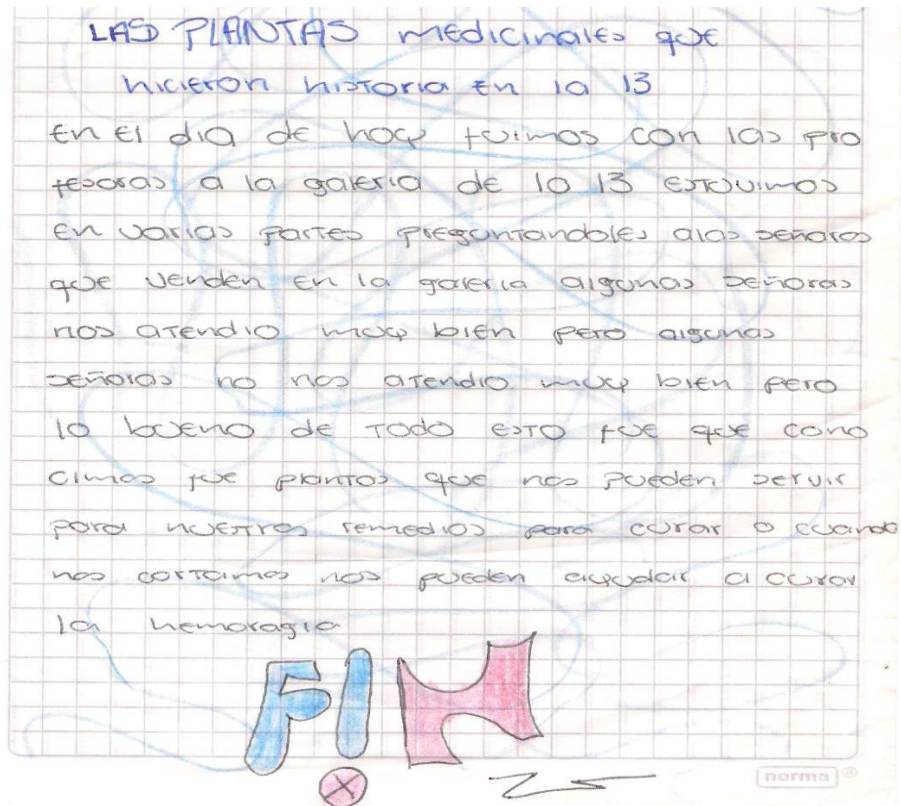 LAS PLANTAS medicinales que
hicieron historia en la 13
en el dia de hoy fuimos con las pro
fesoras a la galeria de la 13 estuvimos
en varias partes preguntandoles alas señoras
que venden en la galeria algunas señoras
nos atendio muy bien pero algunas
señoras no nos atendio muy bien pero
lo bueno de todo esto fue que cono
cimos fue plantas que nos pueden servir
para nuestros remedios para curar o cuando
nos cortamos nos pueden ayudar a curar
la hemoragia
FIN
norma